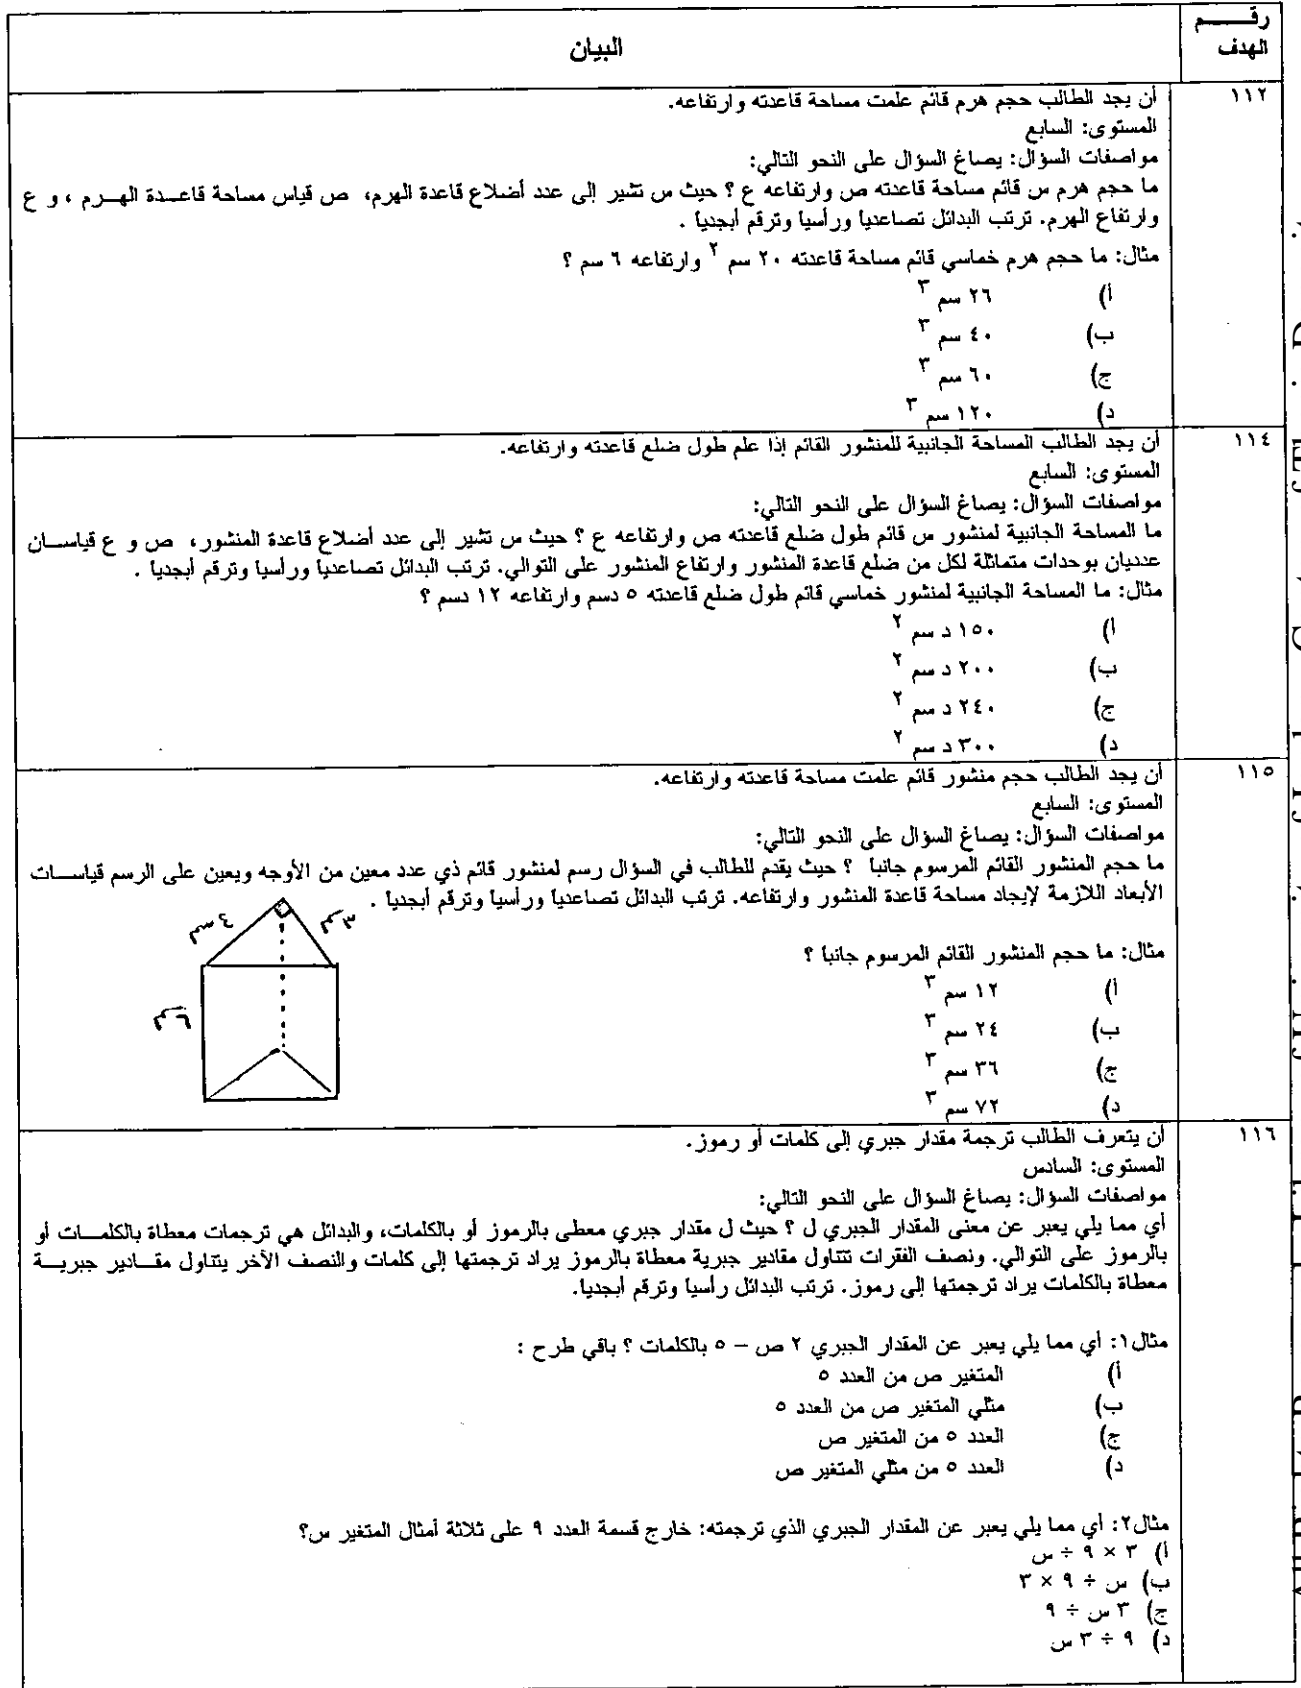 رقـــــم
الهدف
البيان
١١٢
أن يجد الطالب حجم هرم قائم علمت مساحة قاعدته وارتفاعه.
المستوى: السابع
مواصفات السؤال: يصاغ السؤال على النحو التالي:
ما حجم هرم س قائم مساحة قاعدته ص وارتفاعه ع ؟ حيث س تشير إلى عدد أضلاع قاعدة الهرم، ص قياس مساحة قاعــدة الهــرم ، و ع
وارتفاع الهرم. ترتب البدائل تصاعدياً ورأسياً وترقم أبجدياً .
مثال: ما حجم هرم خماسي قائم مساحة قاعدته ٢٠ سم ٢ وارتفاعه ٦ سم ؟
أ) ٢٦ سم ٣
ب) ٤٠ سم ٣
ج) ٦٠ سم ٣
د) ١٢٠ سم ٣
١١٤
أن يجد الطالب المساحة الجانبية للمنشور القائم إذا علم طول ضلع قاعدته وارتفاعه.
المستوى: السابع
مواصفات السؤال: يصاغ السؤال على النحو التالي:
ما المساحة الجانبية لمنشور س قائم طول ضلع قاعدته ص وارتفاعه ع ؟ حيث س تشير إلى عدد أضلاع قاعدة المنشور، ص و ع قياســان
عدديان بوحدات متماثلة لكل من ضلع قاعدة المنشور وارتفاع المنشور على التوالي. ترتب البدائل تصاعدياً ورأسياً وترقم أبجدياً .
مثال: ما المساحة الجانبية لمنشور خماسي قائم طول ضلع قاعدته ٥ دسم وارتفاعه ١٢ دسم ؟
أ) ١٥٠ د سم ٢
ب) ٢٠٠ د سم ٢
ج) ٢٤٠ د سم ٢
د) ٣٠٠ د سم ٢
١١٥
أن يجد الطالب حجم منشور قائم علمت مساحة قاعدته وارتفاعه.
المستوى: السابع
مواصفات السؤال: يصاغ السؤال على النحو التالي:
ما حجم المنشور القائم المرسوم جانباً ؟ حيث يقدم للطالب في السؤال رسم لمنشور قائم ذي عدد معين من الأوجه ويعين على الرسم قياســات
الأبعاد اللازمة لإيجاد مساحة قاعدة المنشور وارتفاعه. ترتب البدائل تصاعدياً ورأسياً وترقم أبجدياً .
٣ سم
٤ سم
٦ سم
مثال: ما حجم المنشور القائم المرسوم جانباً ؟
أ) ١٢ سم ٣
ب) ٢٤ سم ٣
ج) ٣٦ سم ٣
د) ٧٢ سم ٣
١١٦
أن يتعرف الطالب ترجمة مقدار جبري إلى كلمات أو رموز.
المستوى: السادس
مواصفات السؤال: يصاغ السؤال على النحو التالي:
أي مما يلي يعبر عن معنى المقدار الجبري ل ؟ حيث ل مقدار جبري معطى بالرموز أو بالكلمات، والبدائل هي ترجمات معطاة بالكلمــات أو
بالرموز على التوالي. ونصف الفقرات تتناول مقادير جبرية معطاة بالرموز يراد ترجمتها إلى كلمات والنصف الأخر يتناول مقــادير جبريــة
معطاة بالكلمات يراد ترجمتها إلى رموز. ترتب البدائل رأسياً وترقم أبجدياً.
مثال١: أي مما يلي يعبر عن المقدار الجبري ٢ ص – ٥ بالكلمات ؟ باقي طرح :
أ) المتغير ص من العدد ٥
ب) مثلي المتغير ص من العدد ٥
ج) العدد ٥ من المتغير ص
د) العدد ٥ من مثلي المتغير ص
مثال٢: أي مما يلي يعبر عن المقدار الجبري الذي ترجمته: خارج قسمة العدد ٩ على ثلاثة أمثال المتغير س؟
أ) ٣ × ٩ ÷ س
ب) س ÷ ٩ × ٣
ج) ٣ س ÷ ٩
د) ٩ ÷ ٣ س